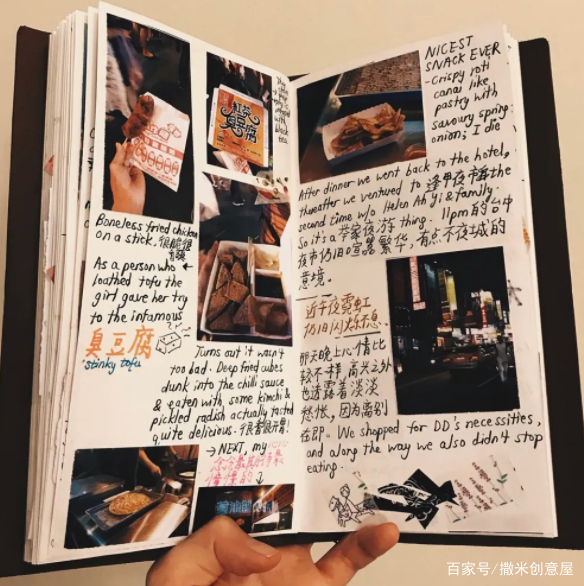 Boneless fried chicken
on a stick. 很脆很
As a person who
loathed tofu the
girl gave her try
to the infamous
臭豆腐
stinky tofu
Turns out it wasn't
too bad. Deep fried cubes
dunk into the chilli sauce
& eaten with some kimchi &
pickled radish actually tasted
quite delicious.
→ NEXT, my
NICEST
SNACK EVER
- Crispy roti
canai like
pastry with
savoury spring
onion; I die
After dinner we went back to the hotel,
thereafter we ventured to 逢甲夜市 the
second time w/o Helen Ah Yi & family.
So it's a 举家夜游 thing. 11pm的台中
夜市仍旧喧嚣繁华,有点不夜城的
意境。
近午夜霓虹
仍旧闪烁不息
那天晚上心情比
较不一样,高兴之外
也透露着淡淡
愁怅,因为离别
在即。We shopped for DD's necessities,
and along the way we also didn't stop
eating.
百家号/撒米创意屋